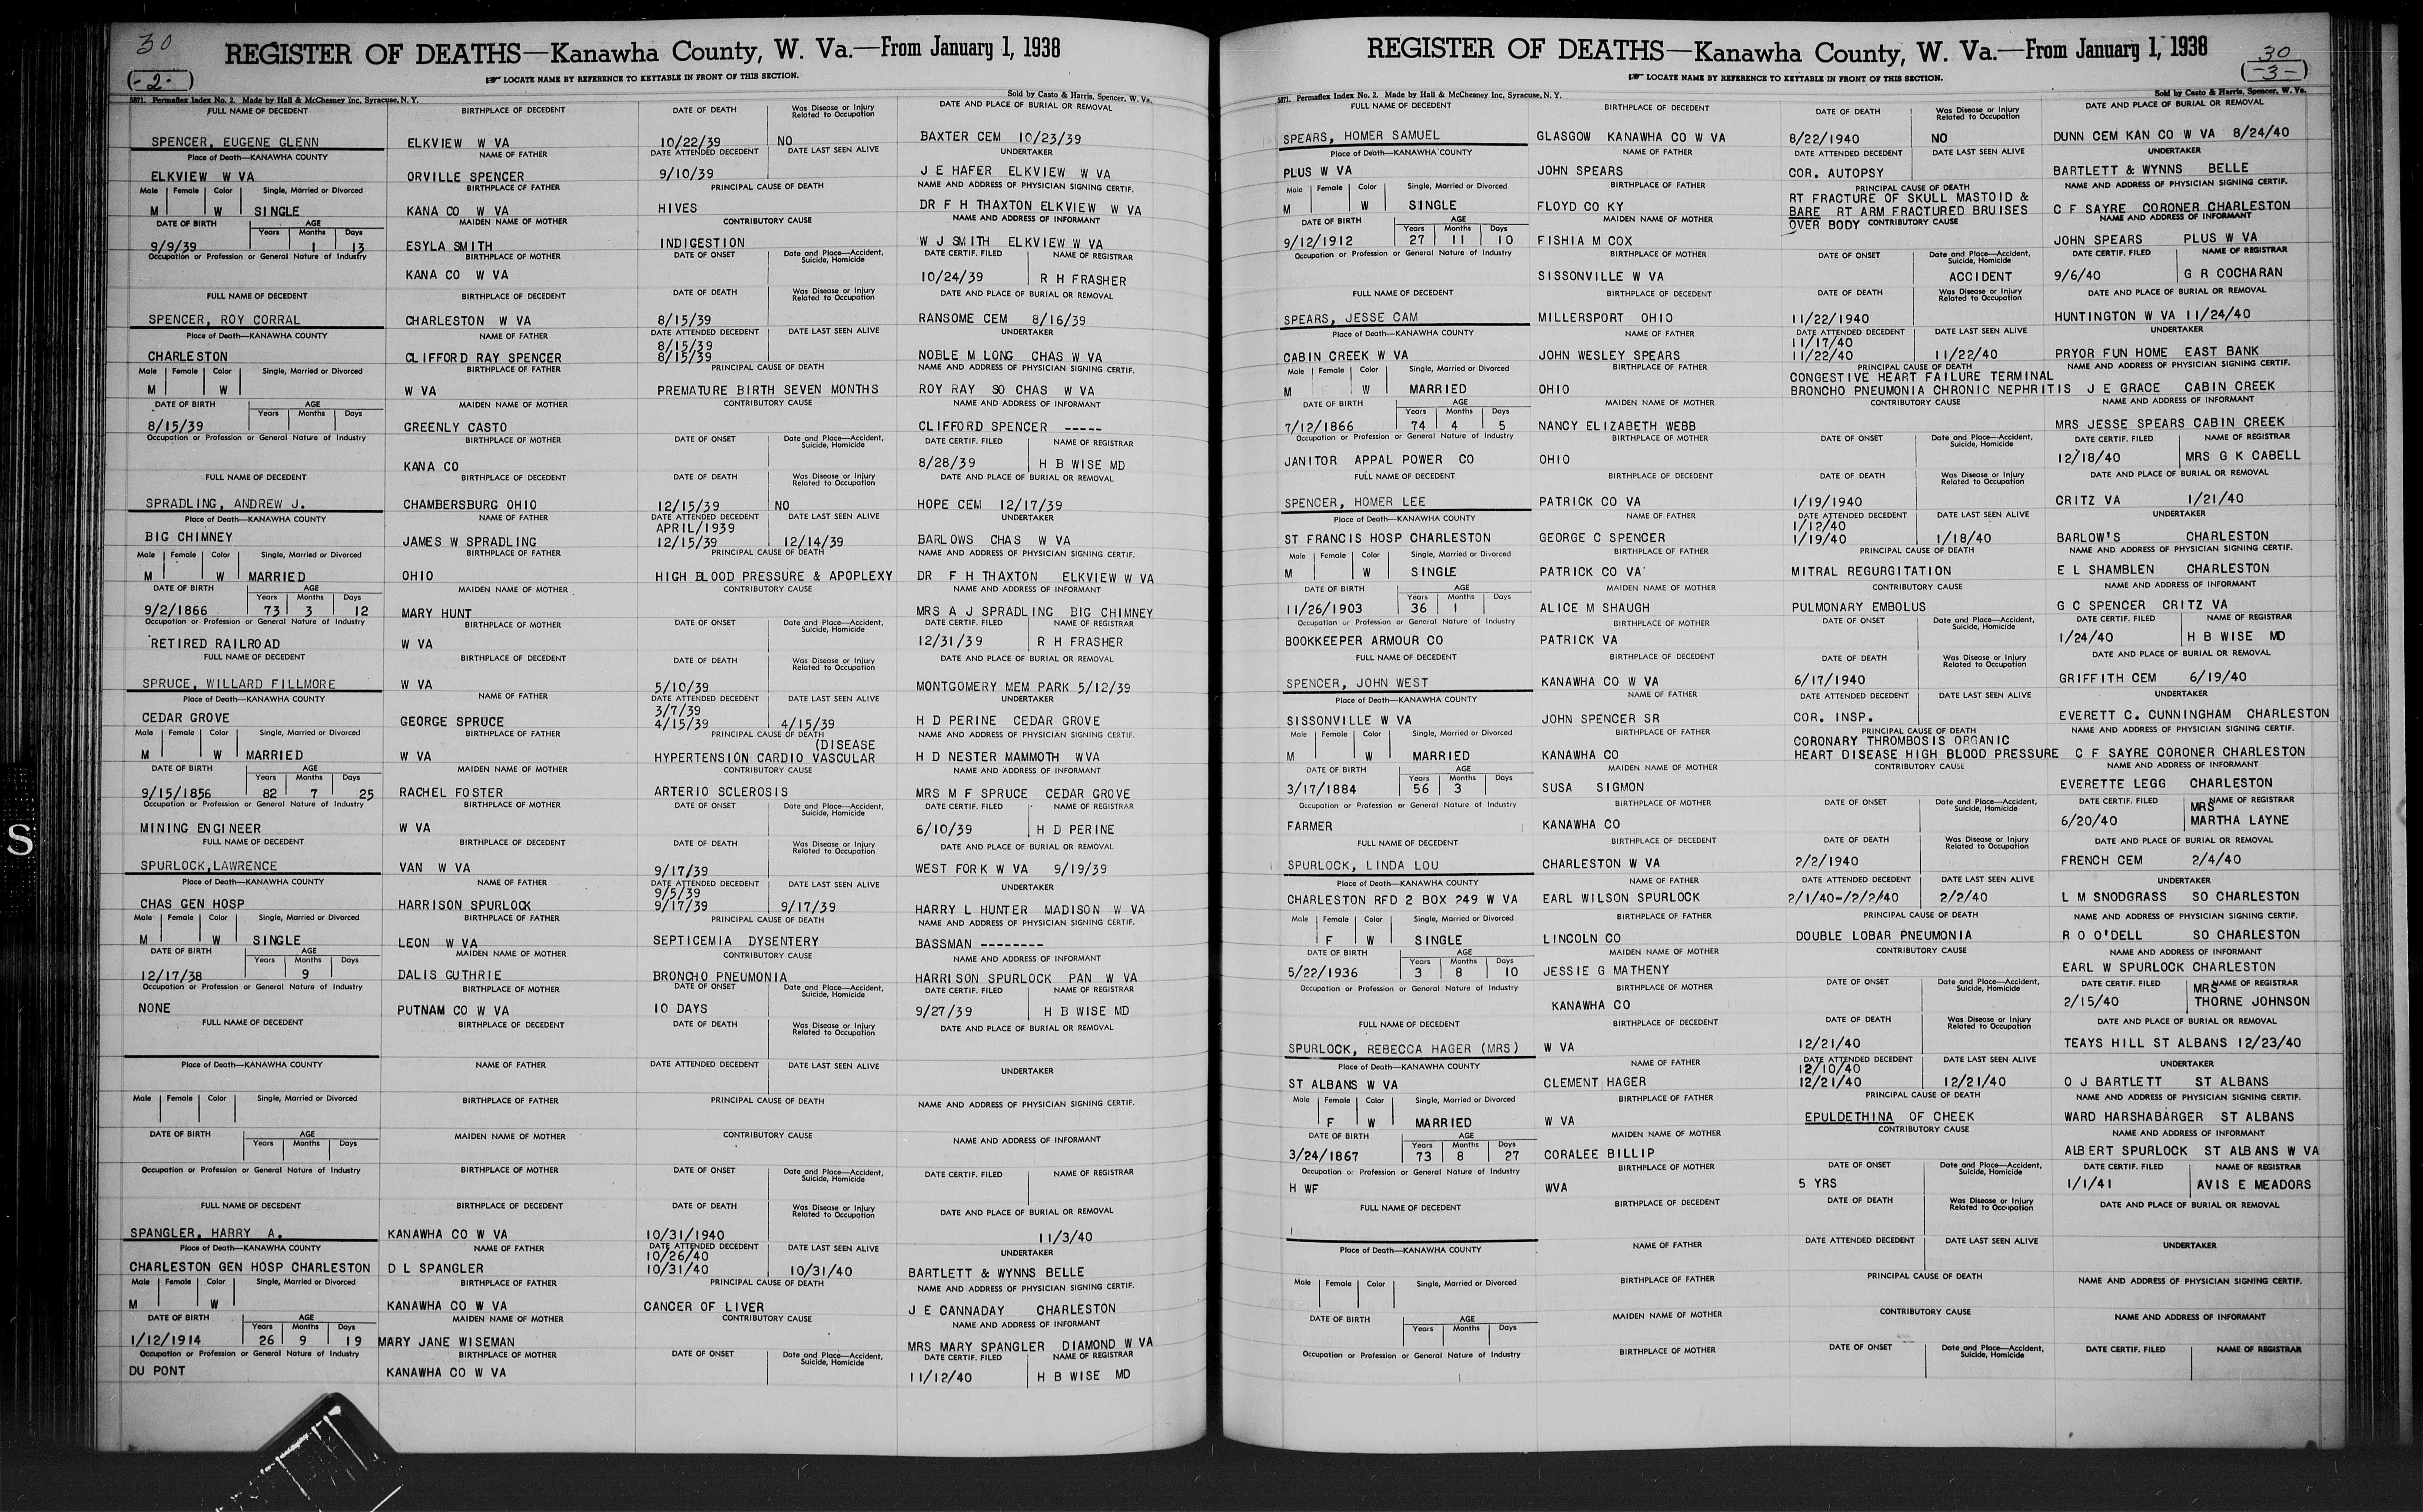 30
REGISTER OF DEATHS—Kanawha County, W. Va.—From January 1, 1938
(-2-)
☞ LOCATE NAME BY REFERENCE TO KEYTABLE IN FRONT OF THIS SECTION.
5871. Permaflex Index No. 2. Made by Hall & McChesney Inc, Syracuse, N. Y. Sold by Casto & Harris, Spencer, W. Va.
FULL NAME OF DECEDENT BIRTHPLACE OF DECEDENT DATE OF DEATH Was Disease or Injury Related to Occupation DATE AND PLACE OF BURIAL OR REMOVAL
SPENCER, EUGENE GLENN ELKVIEW W VA 10/22/39 NO BAXTER CEM 10/23/39
Place of Death—KANAWHA COUNTY NAME OF FATHER DATE ATTENDED DECEDENT DATE LAST SEEN ALIVE UNDERTAKER
ELKVIEW W VA ORVILLE SPENCER 9/10/39 J E HAFER ELKVIEW W VA
Male Female Color Single, Married or Divorced BIRTHPLACE OF FATHER PRINCIPAL CAUSE OF DEATH NAME AND ADDRESS OF PHYSICIAN SIGNING CERTIF.
M W SINGLE KANA CO W VA HIVES DR F H THAXTON ELKVIEW W VA
DATE OF BIRTH AGE Years Months Days MAIDEN NAME OF MOTHER CONTRIBUTORY CAUSE NAME AND ADDRESS OF INFORMANT
9/9/39 1 13 ESYLA SMITH INDIGESTION W J SMITH ELKVIEW W VA
Occupation or Profession or General Nature of Industry BIRTHPLACE OF MOTHER DATE OF ONSET Date and Place—Accident, Suicide, Homicide DATE CERTIF. FILED NAME OF REGISTRAR
KANA CO W VA 10/24/39 R H FRASHER
FULL NAME OF DECEDENT BIRTHPLACE OF DECEDENT DATE OF DEATH Was Disease or Injury Related to Occupation DATE AND PLACE OF BURIAL OR REMOVAL
SPENCER, ROY CORRAL CHARLESTON W VA 8/15/39 RANSOME CEM 8/16/39
Place of Death—KANAWHA COUNTY NAME OF FATHER DATE ATTENDED DECEDENT DATE LAST SEEN ALIVE UNDERTAKER
8/15/39
CHARLESTON CLIFFORD RAY SPENCER 8/15/39 NOBLE M LONG CHAS W VA
Male Female Color Single, Married or Divorced BIRTHPLACE OF FATHER PRINCIPAL CAUSE OF DEATH NAME AND ADDRESS OF PHYSICIAN SIGNING CERTIF.
M W W VA PREMATURE BIRTH SEVEN MONTHS ROY RAY SO CHAS W VA
DATE OF BIRTH AGE Years Months Days MAIDEN NAME OF MOTHER CONTRIBUTORY CAUSE NAME AND ADDRESS OF INFORMANT
8/15/39 GREENLY CASTO CLIFFORD SPENCER -----
Occupation or Profession or General Nature of Industry BIRTHPLACE OF MOTHER DATE OF ONSET Date and Place—Accident, Suicide, Homicide DATE CERTIF. FILED NAME OF REGISTRAR
KANA CO 8/28/39 H B WISE MD
FULL NAME OF DECEDENT BIRTHPLACE OF DECEDENT DATE OF DEATH Was Disease or Injury Related to Occupation DATE AND PLACE OF BURIAL OR REMOVAL
SPRADLING, ANDREW J. CHAMBERSBURG OHIO 12/15/39 NO HOPE CEM 12/17/39
Place of Death—KANAWHA COUNTY NAME OF FATHER DATE ATTENDED DECEDENT DATE LAST SEEN ALIVE UNDERTAKER
APRIL/1939
BIG CHIMNEY JAMES W SPRADLING 12/15/39 12/14/39 BARLOWS CHAS W VA
Male Female Color Single, Married or Divorced BIRTHPLACE OF FATHER PRINCIPAL CAUSE OF DEATH NAME AND ADDRESS OF PHYSICIAN SIGNING CERTIF.
M W MARRIED OHIO HIGH BLOOD PRESSURE & APOPLEXY DR F H THAXTON ELKVIEW W VA
DATE OF BIRTH AGE Years Months Days MAIDEN NAME OF MOTHER CONTRIBUTORY CAUSE NAME AND ADDRESS OF INFORMANT
9/2/1866 73 3 12 MARY HUNT MRS A J SPRADLING BIG CHIMNEY
Occupation or Profession or General Nature of Industry BIRTHPLACE OF MOTHER DATE OF ONSET Date and Place—Accident, Suicide, Homicide DATE CERTIF. FILED NAME OF REGISTRAR
RETIRED RAILROAD W VA 12/31/39 R H FRASHER
FULL NAME OF DECEDENT BIRTHPLACE OF DECEDENT DATE OF DEATH Was Disease or Injury Related to Occupation DATE AND PLACE OF BURIAL OR REMOVAL
SPRUCE, WILLARD FILLMORE W VA 5/10/39 MONTGOMERY MEM PARK 5/12/39
Place of Death—KANAWHA COUNTY NAME OF FATHER DATE ATTENDED DECEDENT DATE LAST SEEN ALIVE UNDERTAKER
3/7/39
CEDAR GROVE GEORGE SPRUCE 4/15/39 4/15/39 H D PERINE CEDAR GROVE
Male Female Color Single, Married or Divorced BIRTHPLACE OF FATHER PRINCIPAL CAUSE OF DEATH NAME AND ADDRESS OF PHYSICIAN SIGNING CERTIF.
(DISEASE
M W MARRIED W VA HYPERTENSION CARDIO VASCULAR H D NESTER MAMMOTH WVA
DATE OF BIRTH AGE Years Months Days MAIDEN NAME OF MOTHER CONTRIBUTORY CAUSE NAME AND ADDRESS OF INFORMANT
9/15/1856 82 7 25 RACHEL FOSTER ARTERIO SCLEROSIS MRS M F SPRUCE CEDAR GROVE
Occupation or Profession or General Nature of Industry BIRTHPLACE OF MOTHER DATE OF ONSET Date and Place—Accident, Suicide, Homicide DATE CERTIF. FILED NAME OF REGISTRAR
MINING ENGINEER W VA 6/10/39 H D PERINE
FULL NAME OF DECEDENT BIRTHPLACE OF DECEDENT DATE OF DEATH Was Disease or Injury Related to Occupation DATE AND PLACE OF BURIAL OR REMOVAL
SPURLOCK, LAWRENCE VAN W VA 9/17/39 WEST FORK W VA 9/19/39
Place of Death—KANAWHA COUNTY NAME OF FATHER DATE ATTENDED DECEDENT DATE LAST SEEN ALIVE UNDERTAKER
9/5/39
CHAS GEN HOSP HARRISON SPURLOCK 9/17/39 9/17/39 HARRY L HUNTER MADISON W VA
Male Female Color Single, Married or Divorced BIRTHPLACE OF FATHER PRINCIPAL CAUSE OF DEATH NAME AND ADDRESS OF PHYSICIAN SIGNING CERTIF.
M W SINGLE LEON W VA SEPTICEMIA DYSENTERY BASSMAN --------
DATE OF BIRTH AGE Years Months Days MAIDEN NAME OF MOTHER CONTRIBUTORY CAUSE NAME AND ADDRESS OF INFORMANT
12/17/38 9 DALIS GUTHRIE BRONCHO PNEUMONIA HARRISON SPURLOCK PAN W VA
Occupation or Profession or General Nature of Industry BIRTHPLACE OF MOTHER DATE OF ONSET Date and Place—Accident, Suicide, Homicide DATE CERTIF. FILED NAME OF REGISTRAR
NONE PUTNAM CO W VA 10 DAYS 9/27/39 H B WISE MD
FULL NAME OF DECEDENT BIRTHPLACE OF DECEDENT DATE OF DEATH Was Disease or Injury Related to Occupation DATE AND PLACE OF BURIAL OR REMOVAL
Place of Death—KANAWHA COUNTY NAME OF FATHER DATE ATTENDED DECEDENT DATE LAST SEEN ALIVE UNDERTAKER
Male Female Color Single, Married or Divorced BIRTHPLACE OF FATHER PRINCIPAL CAUSE OF DEATH NAME AND ADDRESS OF PHYSICIAN SIGNING CERTIF.
DATE OF BIRTH AGE Years Months Days MAIDEN NAME OF MOTHER CONTRIBUTORY CAUSE NAME AND ADDRESS OF INFORMANT
Occupation or Profession or General Nature of Industry BIRTHPLACE OF MOTHER DATE OF ONSET Date and Place—Accident, Suicide, Homicide DATE CERTIF. FILED NAME OF REGISTRAR
FULL NAME OF DECEDENT BIRTHPLACE OF DECEDENT DATE OF DEATH Was Disease or Injury Related to Occupation DATE AND PLACE OF BURIAL OR REMOVAL
SPANGLER, HARRY A. KANAWHA CO W VA 10/31/1940 11/3/40
Place of Death—KANAWHA COUNTY NAME OF FATHER DATE ATTENDED DECEDENT DATE LAST SEEN ALIVE UNDERTAKER
10/26/40
CHARLESTON GEN HOSP CHARLESTON D L SPANGLER 10/31/40 10/31/40 BARTLETT & WYNNS BELLE
Male Female Color Single, Married or Divorced BIRTHPLACE OF FATHER PRINCIPAL CAUSE OF DEATH NAME AND ADDRESS OF PHYSICIAN SIGNING CERTIF.
M W KANAWHA CO W VA CANCER OF LIVER J E CANNADAY CHARLESTON
DATE OF BIRTH AGE Years Months Days MAIDEN NAME OF MOTHER CONTRIBUTORY CAUSE NAME AND ADDRESS OF INFORMANT
1/12/1914 26 9 19 MARY JANE WISEMAN MRS MARY SPANGLER DIAMOND W VA
Occupation or Profession or General Nature of Industry BIRTHPLACE OF MOTHER DATE OF ONSET Date and Place—Accident, Suicide, Homicide DATE CERTIF. FILED NAME OF REGISTRAR
DU PONT KANAWHA CO W VA 11/12/40 H B WISE MD
S
REGISTER OF DEATHS—Kanawha County, W. Va.—From January 1, 1938
30
(-3-)
☞ LOCATE NAME BY REFERENCE TO KEYTABLE IN FRONT OF THIS SECTION.
5871. Permaflex Index No. 2. Made by Hall & McChesney Inc, Syracuse, N. Y. Sold by Casto & Harris, Spencer, W. Va.
FULL NAME OF DECEDENT BIRTHPLACE OF DECEDENT DATE OF DEATH Was Disease or Injury Related to Occupation DATE AND PLACE OF BURIAL OR REMOVAL
SPEARS, HOMER SAMUEL GLASGOW KANAWHA CO W VA 8/22/1940 NO DUNN CEM KAN CO W VA 8/24/40
Place of Death—KANAWHA COUNTY NAME OF FATHER DATE ATTENDED DECEDENT DATE LAST SEEN ALIVE UNDERTAKER
PLUS W VA JOHN SPEARS COR. AUTOPSY BARTLETT & WYNNS BELLE
Male Female Color Single, Married or Divorced BIRTHPLACE OF FATHER PRINCIPAL CAUSE OF DEATH NAME AND ADDRESS OF PHYSICIAN SIGNING CERTIF.
RT FRACTURE OF SKULL MASTOID &
M W SINGLE FLOYD CO KY BARE RT ARM FRACTURED BRUISES C F SAYRE CORONER CHARLESTON
DATE OF BIRTH AGE Years Months Days MAIDEN NAME OF MOTHER OVER BODY CONTRIBUTORY CAUSE NAME AND ADDRESS OF INFORMANT
9/12/1912 27 11 10 FISHIA M COX JOHN SPEARS PLUS W VA
Occupation or Profession or General Nature of Industry BIRTHPLACE OF MOTHER DATE OF ONSET Date and Place—Accident, Suicide, Homicide DATE CERTIF. FILED NAME OF REGISTRAR
SISSONVILLE W VA ACCIDENT 9/6/40 G R COCHARAN
FULL NAME OF DECEDENT BIRTHPLACE OF DECEDENT DATE OF DEATH Was Disease or Injury Related to Occupation DATE AND PLACE OF BURIAL OR REMOVAL
SPEARS, JESSE CAM MILLERSPORT OHIO 11/22/1940 HUNTINGTON W VA 11/24/40
Place of Death—KANAWHA COUNTY NAME OF FATHER DATE ATTENDED DECEDENT DATE LAST SEEN ALIVE UNDERTAKER
11/17/40
CABIN CREEK W VA JOHN WESLEY SPEARS 11/22/40 11/22/40 PRYOR FUN HOME EAST BANK
Male Female Color Single, Married or Divorced BIRTHPLACE OF FATHER PRINCIPAL CAUSE OF DEATH NAME AND ADDRESS OF PHYSICIAN SIGNING CERTIF.
CONGESTIVE HEART FAILURE TERMINAL
M W MARRIED OHIO BRONCHO PNEUMONIA CHRONIC NEPHRITIS J E GRACE CABIN CREEK
DATE OF BIRTH AGE Years Months Days MAIDEN NAME OF MOTHER CONTRIBUTORY CAUSE NAME AND ADDRESS OF INFORMANT
7/12/1866 74 4 5 NANCY ELIZABETH WEBB MRS JESSE SPEARS CABIN CREEK
Occupation or Profession or General Nature of Industry BIRTHPLACE OF MOTHER DATE OF ONSET Date and Place—Accident, Suicide, Homicide DATE CERTIF. FILED NAME OF REGISTRAR
JANITOR APPAL POWER CO OHIO 12/18/40 MRS G K CABELL
FULL NAME OF DECEDENT BIRTHPLACE OF DECEDENT DATE OF DEATH Was Disease or Injury Related to Occupation DATE AND PLACE OF BURIAL OR REMOVAL
SPENCER, HOMER LEE PATRICK CO VA 1/19/1940 CRITZ VA 1/21/40
Place of Death—KANAWHA COUNTY NAME OF FATHER DATE ATTENDED DECEDENT DATE LAST SEEN ALIVE UNDERTAKER
1/12/40
ST FRANCIS HOSP CHARLESTON GEORGE C SPENCER 1/19/40 1/18/40 BARLOW'S CHARLESTON
Male Female Color Single, Married or Divorced BIRTHPLACE OF FATHER PRINCIPAL CAUSE OF DEATH NAME AND ADDRESS OF PHYSICIAN SIGNING CERTIF.
M W SINGLE PATRICK CO VA MITRAL REGURGITATION E L SHAMBLEN CHARLESTON
DATE OF BIRTH AGE Years Months Days MAIDEN NAME OF MOTHER CONTRIBUTORY CAUSE NAME AND ADDRESS OF INFORMANT
11/26/1903 36 1 ALICE M SHAUGH PULMONARY EMBOLUS G C SPENCER CRITZ VA
Occupation or Profession or General Nature of Industry BIRTHPLACE OF MOTHER DATE OF ONSET Date and Place—Accident, Suicide, Homicide DATE CERTIF. FILED NAME OF REGISTRAR
BOOKKEEPER ARMOUR CO PATRICK VA 1/24/40 H B WISE MD
FULL NAME OF DECEDENT BIRTHPLACE OF DECEDENT DATE OF DEATH Was Disease or Injury Related to Occupation DATE AND PLACE OF BURIAL OR REMOVAL
SPENCER, JOHN WEST KANAWHA CO W VA 6/17/1940 GRIFFITH CEM 6/19/40
Place of Death—KANAWHA COUNTY NAME OF FATHER DATE ATTENDED DECEDENT DATE LAST SEEN ALIVE UNDERTAKER
SISSONVILLE W VA JOHN SPENCER SR COR. INSP. EVERETT C. CUNNINGHAM CHARLESTON
Male Female Color Single, Married or Divorced BIRTHPLACE OF FATHER PRINCIPAL CAUSE OF DEATH NAME AND ADDRESS OF PHYSICIAN SIGNING CERTIF.
CORONARY THROMBOSIS ORGANIC
M W MARRIED KANAWHA CO HEART DISEASE HIGH BLOOD PRESSURE C F SAYRE CORONER CHARLESTON
DATE OF BIRTH AGE Years Months Days MAIDEN NAME OF MOTHER CONTRIBUTORY CAUSE NAME AND ADDRESS OF INFORMANT
3/17/1884 56 3 SUSA SIGMON EVERETTE LEGG CHARLESTON
Occupation or Profession or General Nature of Industry BIRTHPLACE OF MOTHER DATE OF ONSET Date and Place—Accident, Suicide, Homicide DATE CERTIF. FILED NAME OF REGISTRAR
MRS
FARMER KANAWHA CO 6/20/40 MARTHA LAYNE
FULL NAME OF DECEDENT BIRTHPLACE OF DECEDENT DATE OF DEATH Was Disease or Injury Related to Occupation DATE AND PLACE OF BURIAL OR REMOVAL
SPURLOCK, LINDA LOU CHARLESTON W VA 2/2/1940 FRENCH CEM 2/4/40
Place of Death—KANAWHA COUNTY NAME OF FATHER DATE ATTENDED DECEDENT DATE LAST SEEN ALIVE UNDERTAKER
CHARLESTON RFD 2 BOX 249 W VA EARL WILSON SPURLOCK 2/1/40-/2/2/40 2/2/40 L M SNODGRASS SO CHARLESTON
Male Female Color Single, Married or Divorced BIRTHPLACE OF FATHER PRINCIPAL CAUSE OF DEATH NAME AND ADDRESS OF PHYSICIAN SIGNING CERTIF.
F W SINGLE LINCOLN CO DOUBLE LOBAR PNEUMONIA R O O'DELL SO CHARLESTON
DATE OF BIRTH AGE Years Months Days MAIDEN NAME OF MOTHER CONTRIBUTORY CAUSE NAME AND ADDRESS OF INFORMANT
5/22/1936 3 8 10 JESSIE G MATHENY EARL W SPURLOCK CHARLESTON
Occupation or Profession or General Nature of Industry BIRTHPLACE OF MOTHER DATE OF ONSET Date and Place—Accident, Suicide, Homicide DATE CERTIF. FILED NAME OF REGISTRAR
MRS
KANAWHA CO 2/15/40 THORNE JOHNSON
FULL NAME OF DECEDENT BIRTHPLACE OF DECEDENT DATE OF DEATH Was Disease or Injury Related to Occupation DATE AND PLACE OF BURIAL OR REMOVAL
SPURLOCK, REBECCA HAGER (MRS) W VA 12/21/40 TEAYS HILL ST ALBANS 12/23/40
Place of Death—KANAWHA COUNTY NAME OF FATHER DATE ATTENDED DECEDENT DATE LAST SEEN ALIVE UNDERTAKER
12/10/40
ST ALBANS W VA CLEMENT HAGER 12/21/40 12/21/40 O J BARTLETT ST ALBANS
Male Female Color Single, Married or Divorced BIRTHPLACE OF FATHER PRINCIPAL CAUSE OF DEATH NAME AND ADDRESS OF PHYSICIAN SIGNING CERTIF.
F W MARRIED W VA EPULDETHINA OF CHEEK WARD HARSHABARGER ST ALBANS
DATE OF BIRTH AGE Years Months Days MAIDEN NAME OF MOTHER CONTRIBUTORY CAUSE NAME AND ADDRESS OF INFORMANT
3/24/1867 73 8 27 CORALEE BILLIP ALBERT SPURLOCK ST ALBANS W VA
Occupation or Profession or General Nature of Industry BIRTHPLACE OF MOTHER DATE OF ONSET Date and Place—Accident, Suicide, Homicide DATE CERTIF. FILED NAME OF REGISTRAR
H WF WVA 5 YRS 1/1/41 AVIS E MEADORS
FULL NAME OF DECEDENT BIRTHPLACE OF DECEDENT DATE OF DEATH Was Disease or Injury Related to Occupation DATE AND PLACE OF BURIAL OR REMOVAL
Place of Death—KANAWHA COUNTY NAME OF FATHER DATE ATTENDED DECEDENT DATE LAST SEEN ALIVE UNDERTAKER
Male Female Color Single, Married or Divorced BIRTHPLACE OF FATHER PRINCIPAL CAUSE OF DEATH NAME AND ADDRESS OF PHYSICIAN SIGNING CERTIF.
DATE OF BIRTH AGE Years Months Days MAIDEN NAME OF MOTHER CONTRIBUTORY CAUSE NAME AND ADDRESS OF INFORMANT
Occupation or Profession or General Nature of Industry BIRTHPLACE OF MOTHER DATE OF ONSET Date and Place—Accident, Suicide, Homicide DATE CERTIF. FILED NAME OF REGISTRAR